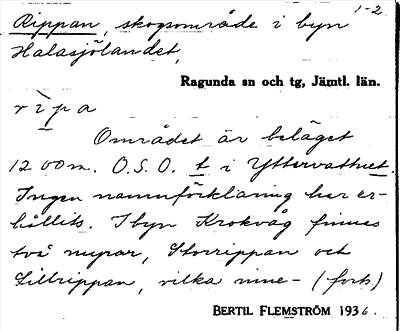 1-2.
Rippan, skogsområde i byn
Halasjölandet,
Ragunda sn och tg, Jämtl. län.
rìpa
Området är beläget
1200 m. O.S.O. t i Yttervattnet.
Ingen namnförklaring har er-
hållits. I byn Krokvåg finnes
två myrar, Storrippan och
Lillrippan, vilka mine- (forts)
BERTIL FLEMSTRÖM 1936.